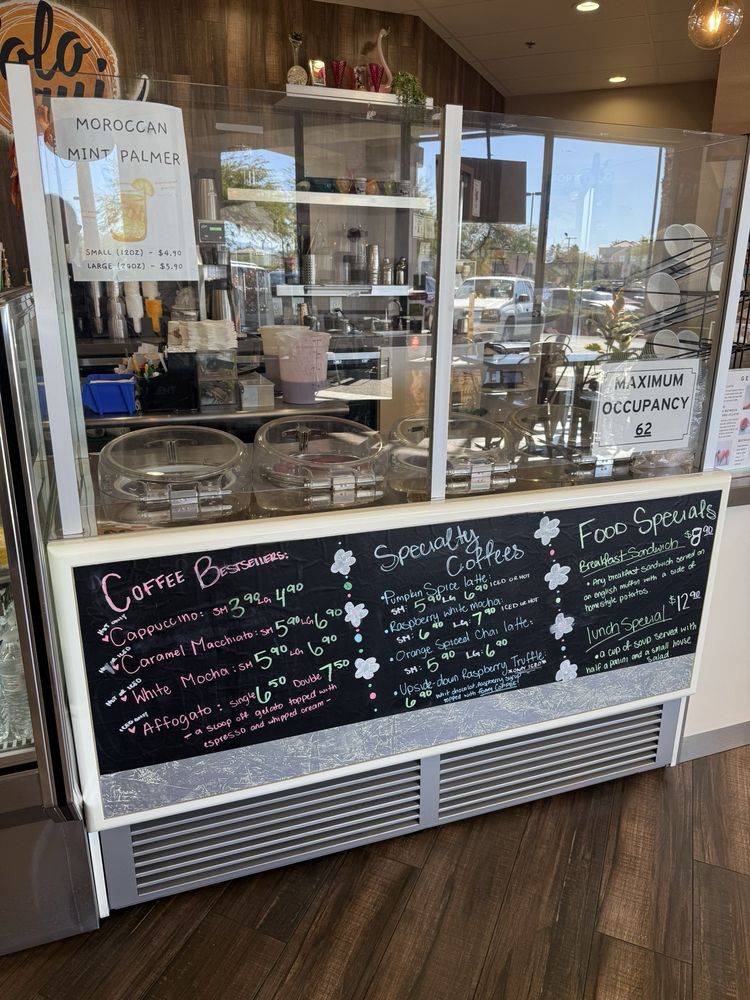 olo
MOROCCAN
MINT PALMER
SMALL (12OZ) - $4.90
LARGE (24OZ) - $5.90
MAXIMUM
OCCUPANCY
62
COFFEE BESTSELLERS:
HOT ONLY
Cappuccino: SM 3.90 LG 4.90
Caramel Macchiato: SM 5.90 LG 6.90
HOT OR ICED
White Mocha: SM 5.90 LG 6.90
ICED ONLY
Affogato: Single 6.50 Double 7.50
- a scoop off gelato topped with
espresso and whipped cream -
Specialty
Coffees
Pumpkin Spice latte:
SM: 5.90 LG: 6.90 ICED OR HOT
Raspberry white mocha:
SM: 6.90 LG: 7.90 ICED OR HOT
Orange Spiced Chai latte:
SM: 5.90 LG: 6.90
Upside-down Raspberry Truffle:
6.90 White chocolate Raspberry Syrup
topped with
Food Specials
Breakfast Sandwich $8.90
• Any breakfast sandwich served on
an english muffin with a side of
homestyle potatos.
Lunch Special $12.90
• a cup of soup served with
half a panini and a small house
Salad